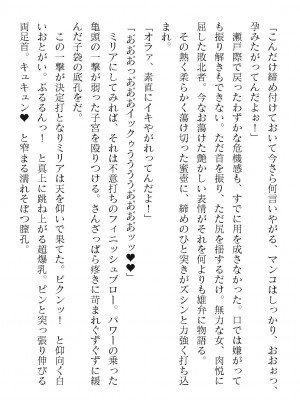 「こんだけ締め付けておいて今さら何言いやがる、マンコはしっかり、おおぉっ、
孕みたがってんだよぉ！」
瀬戸際で戻ったわずかな危機感も、すでに用を成さなかった。口では嫌がって
も振り解きもできない。ただ首を振り、ただ尻を揺するだけ。無力な女、肉悦に
屈した敗北者。今なお蕩けた艶かしい表情がそれを何よりも雄弁に物語る。
その熱く柔らかく蕩け切った蜜壺に、締めのひと突きがズシンと力強く打ち込
まれ。
「オラァ、素直にイキやがれってんだよー！」
「おおおっっおおイックぅうううおおおおッッ♥♥」
ミリアにしてみれば、それは不意打ちのフィニッシュブロー。パワーの乗った
亀頭の一撃が弱った子宮を殴りつける。さんざっぱら疼きに苛まれぐずぐずに緩
んだ子袋の底孔をだ。
この一撃が決定打となりミリアは天を仰いで果てた。ビクンッ！　と仰向く白
いおとがい。ぶるるんっ！　と真上に跳ね上がる超爆乳。ピンと突っ張り伸びる
両足首。キュキュン♥　と窄まる濡れそぼつ膣孔。